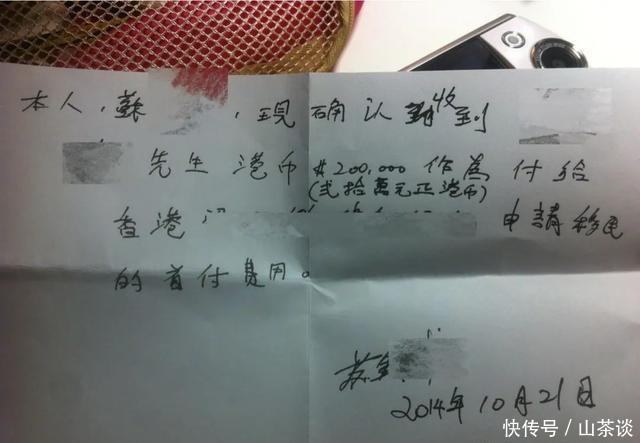 本人，蘇，現确认收到
先生港币$200,000作為付给
(弍拾萬元正港币)
香港申請移民
的首付费用。
苏
2014年10月21日
快传号／山茶谈